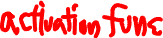 activation func